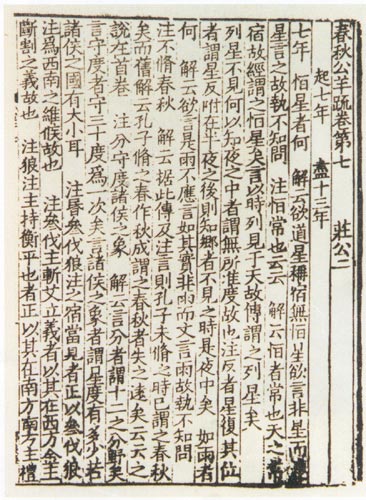 春秋公羊疏卷第七　莊公二
起七年　盡十三年
七年　恒星者何　解云欲道星宿無恒星欲言非星而連
星言之故執不知問　注恒常也云云　解云恒者常也天之常
宿故經謂之恒星矣言以時列見于天故傳謂之列星矣
列星不見何以知夜之中者謂無所准度故也注反者星復其位
者謂星反附在半夜之後則知鄉者不見之時是夜中矣　如雨者
何　解云欲言是雨不應言如其實非雨而文言雨故執不知問
注不脩春秋　解云據此傳及注言則孔子未脩之時已謂之春秋
矣而舊解云孔子脩之春作秋成謂之春秋者失之遠矣云云之
說在首卷　注分守度諸侯之象　解云言分者謂十二之分野矣
言守度者守三十度爲一次矣言諸侯之象者謂星度有多少若
諸侯之國有大小耳　注昬參伐狼注之宿當見者正以參伐狼
注爲西南之維候故也　注參伐主斬艾立義者以其在西方金主
斷割之義故也　注狼注主持衡平也者正以其在南方南方主禮